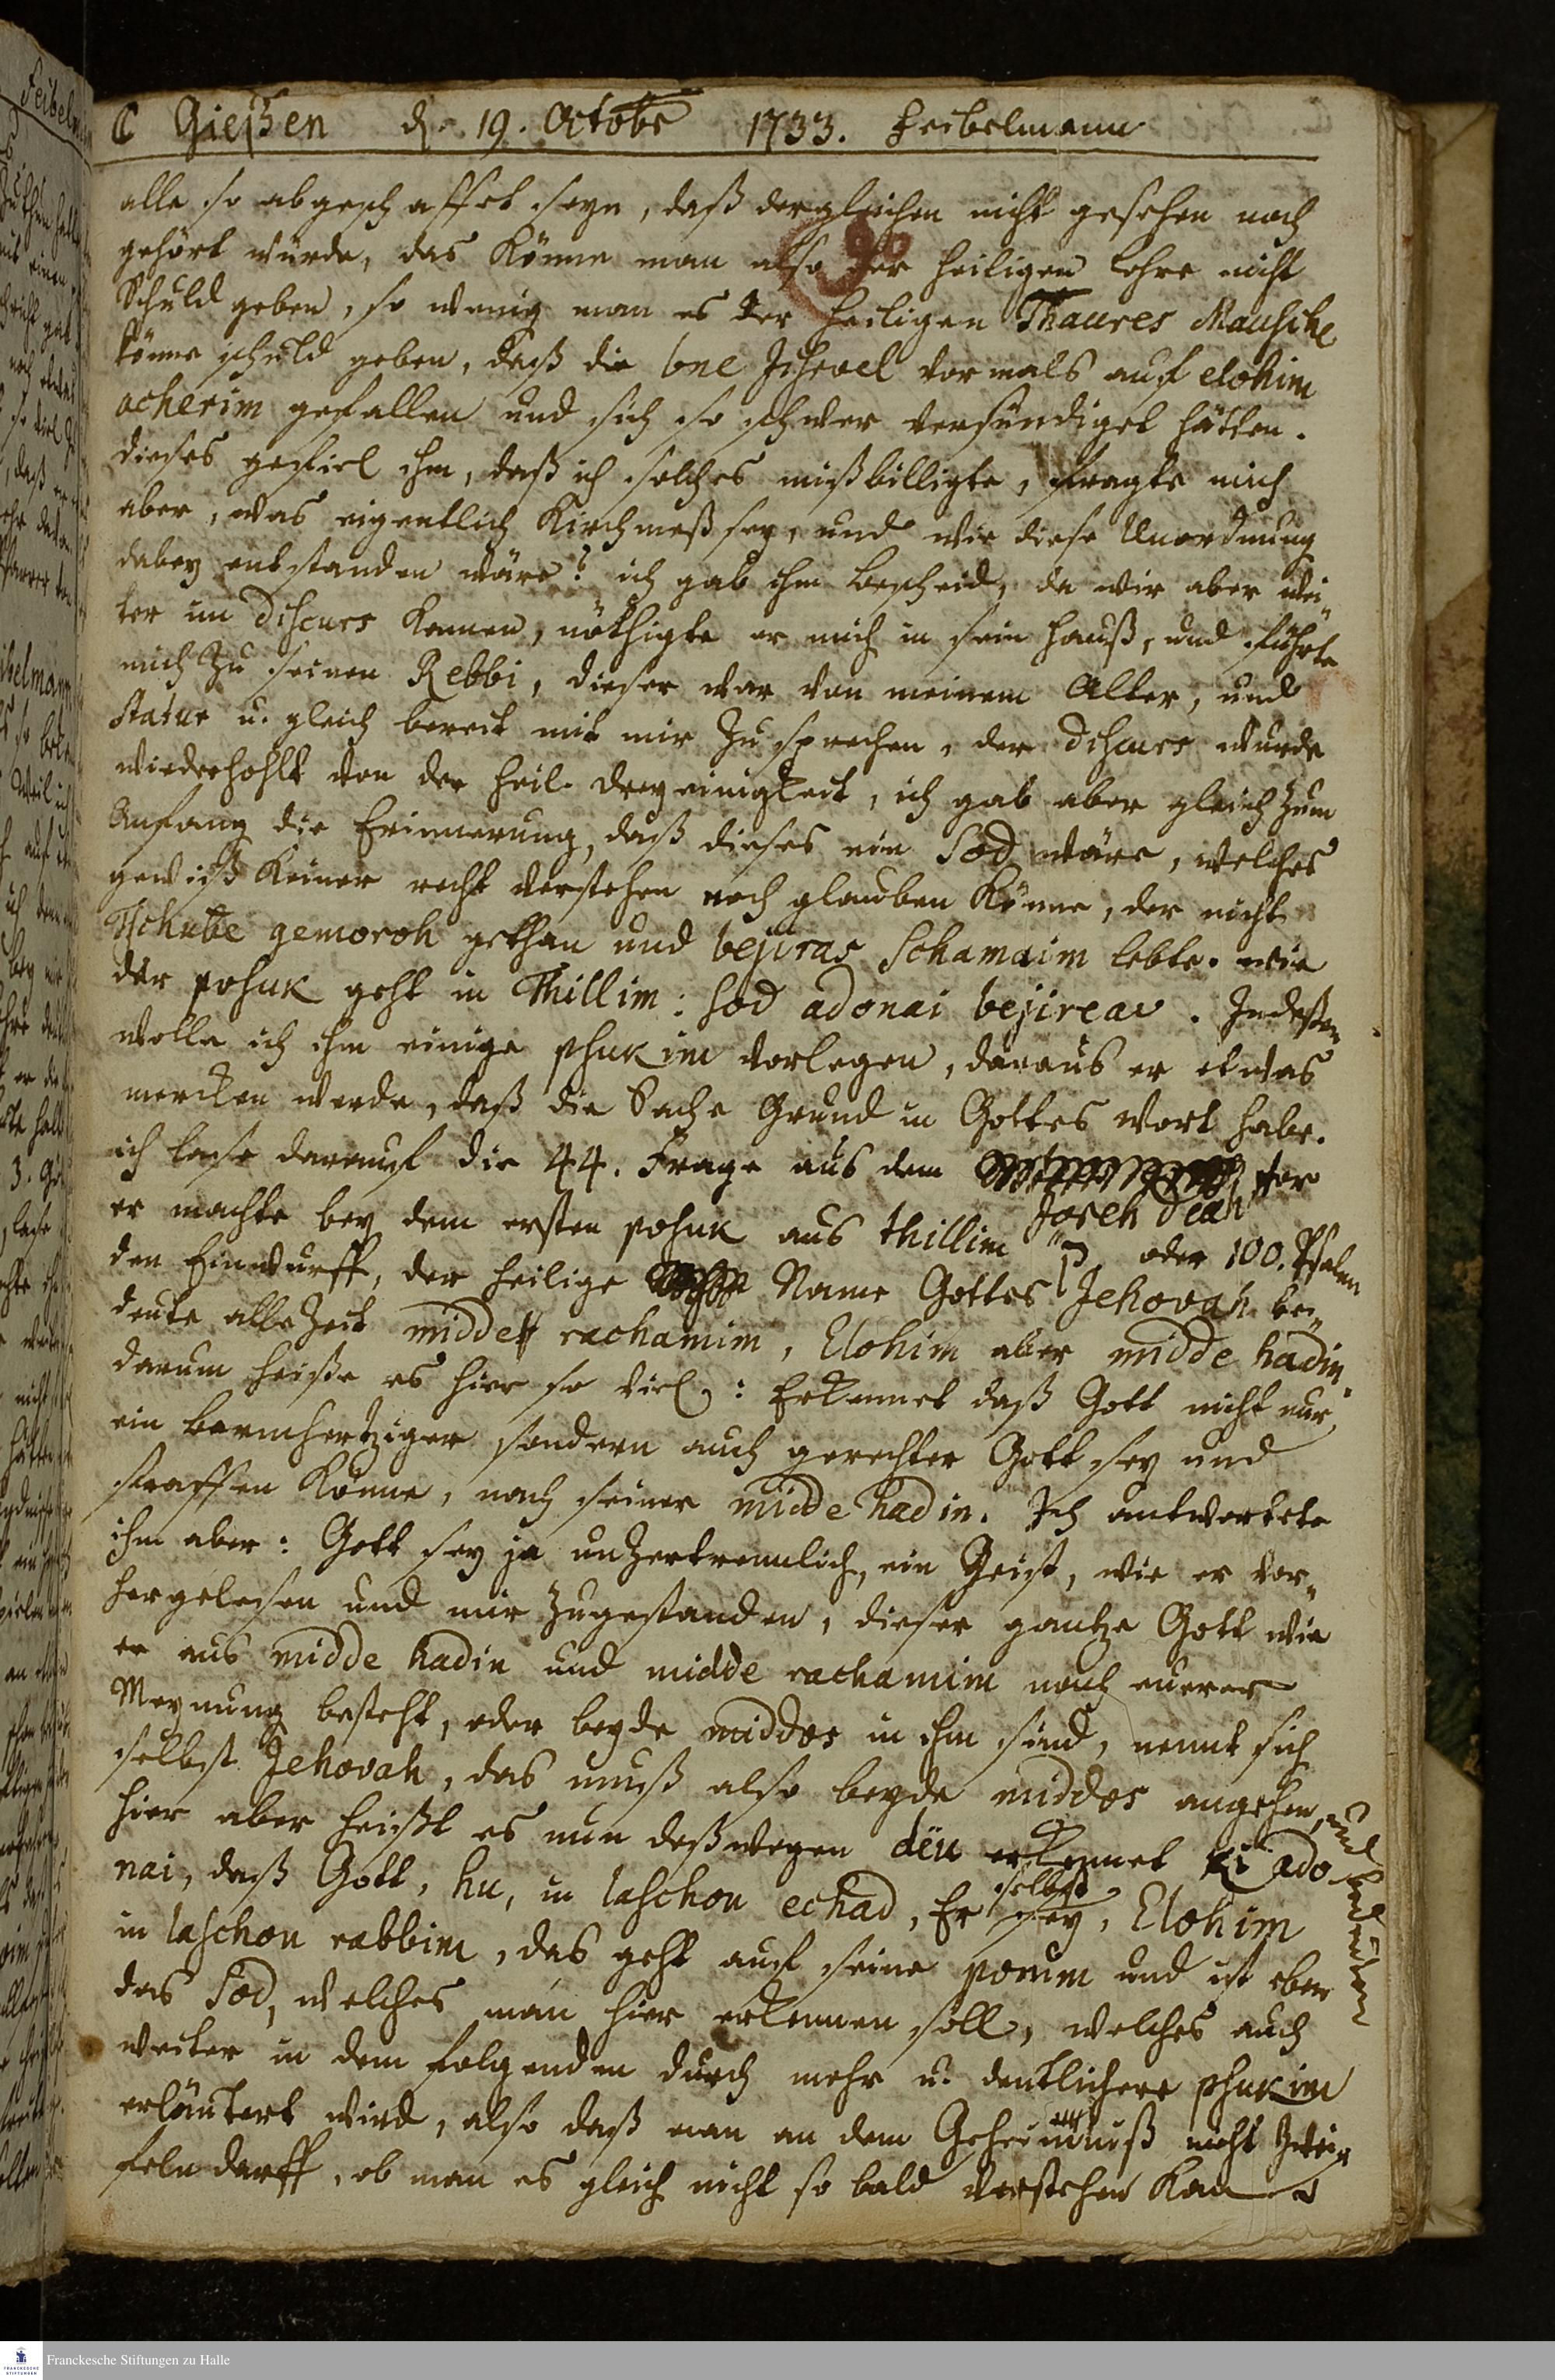 C Gießen d. 19. Octobr 1733. Feibelmann
alle so abgeschaffet seyn, daß dergleichen nicht gesehen noch
gehört würde, das könne man also der heiligen Lehre nicht
Schuld geben, so wenig man es der heiligen Thaures Mausche
könne schuld geben, daß die bne Jisroel vormals auf elohim
acherim gefallen und sich so schwer versündiget hätten.
dieses gefiel ihm, daß ich solches mißbilligte, fragte mich
aber, was eigentlich Kirchmeß sey, und wie diese Unordnung
dabey entstanden wäre? ich gab ihm bescheid, da wir aber wei„
ter im discurs kamen, nöthigte er mich in sein Hauß, und führte
mich zu seinen Rebbi, dieser war von meinem Alter, und
Statur u. gleich bereit mit mir zu sprechen, der discurs wurde
wiederhohlt von der heil. dreyeinigkeit, ich gab aber gleich zum
Anfang die Erinnerung, daß dieses ein Sod wäre, welches
gewiß keiner recht verstehen noch glauben könne, der nicht
Tschube gemoroh gethan und bejiras Schamaim lebte. wie
der posuk geht in Thillim: sod adonai bejireav. Indeßen
wolle ich ihm einige psukim vorlegen, daraus er etwas
mercken werde, daß die Sache Grund in Gottes Wort habe.
ich lase darauf die 44. Frage aus dem vor
Joreh deah
er machte bey dem ersten posuk aus thillim ק oder 100. Psalm
den Einwurff, der heilige Name Gottes Jehovah be„
deute allezeit midde rachamim, Elohim aber midde hadin,
darum heiße es hier so viel: Erkennet daß Gott nicht nur
ein barmhertziger sondern auch gerechter Gott sey und
straffen könne, nach seiner midde hadin. Ich antwortete
ihm aber: Gott sey ja unzertrennlich, ein Geist, wie er vor„
hergelesen und mir zugestanden, dieser gantze Gott wie
er aus midde hadin und midde rachamim nach eurer
Meynung besteht, oder beyde middos in ihm sind, nennt sich
selbst Jehovah, das muß also beyde middos angehen, und bedeuten
hier aber heißt es nun deßwegen dëu erkennet ki ado
nai, daß Gott, hu, in laschon echad, Er selbst sey, Elohim
in laschon rabbim, das geht auf seine ponim und ist eben
das Sod, welches man hier erkennen soll, welches auch
weiter in dem folgenden durch mehr u. deutlichere psukim
erläutert wird, also daß man an dem Geheimnuß nicht zwei„
feln darff, ob man es gleich nicht so bald verstehen kan
Franckesche Stiftungen zu Halle